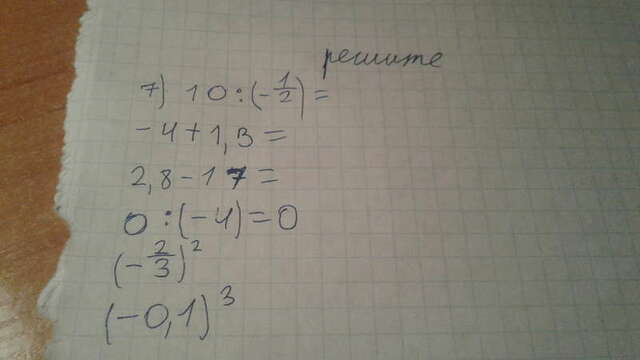 решите
7) 10:(-1/2)=
-4+1,3=
2,8-17=
0:(-4)=0
(-2/3)²
(-0,1)³